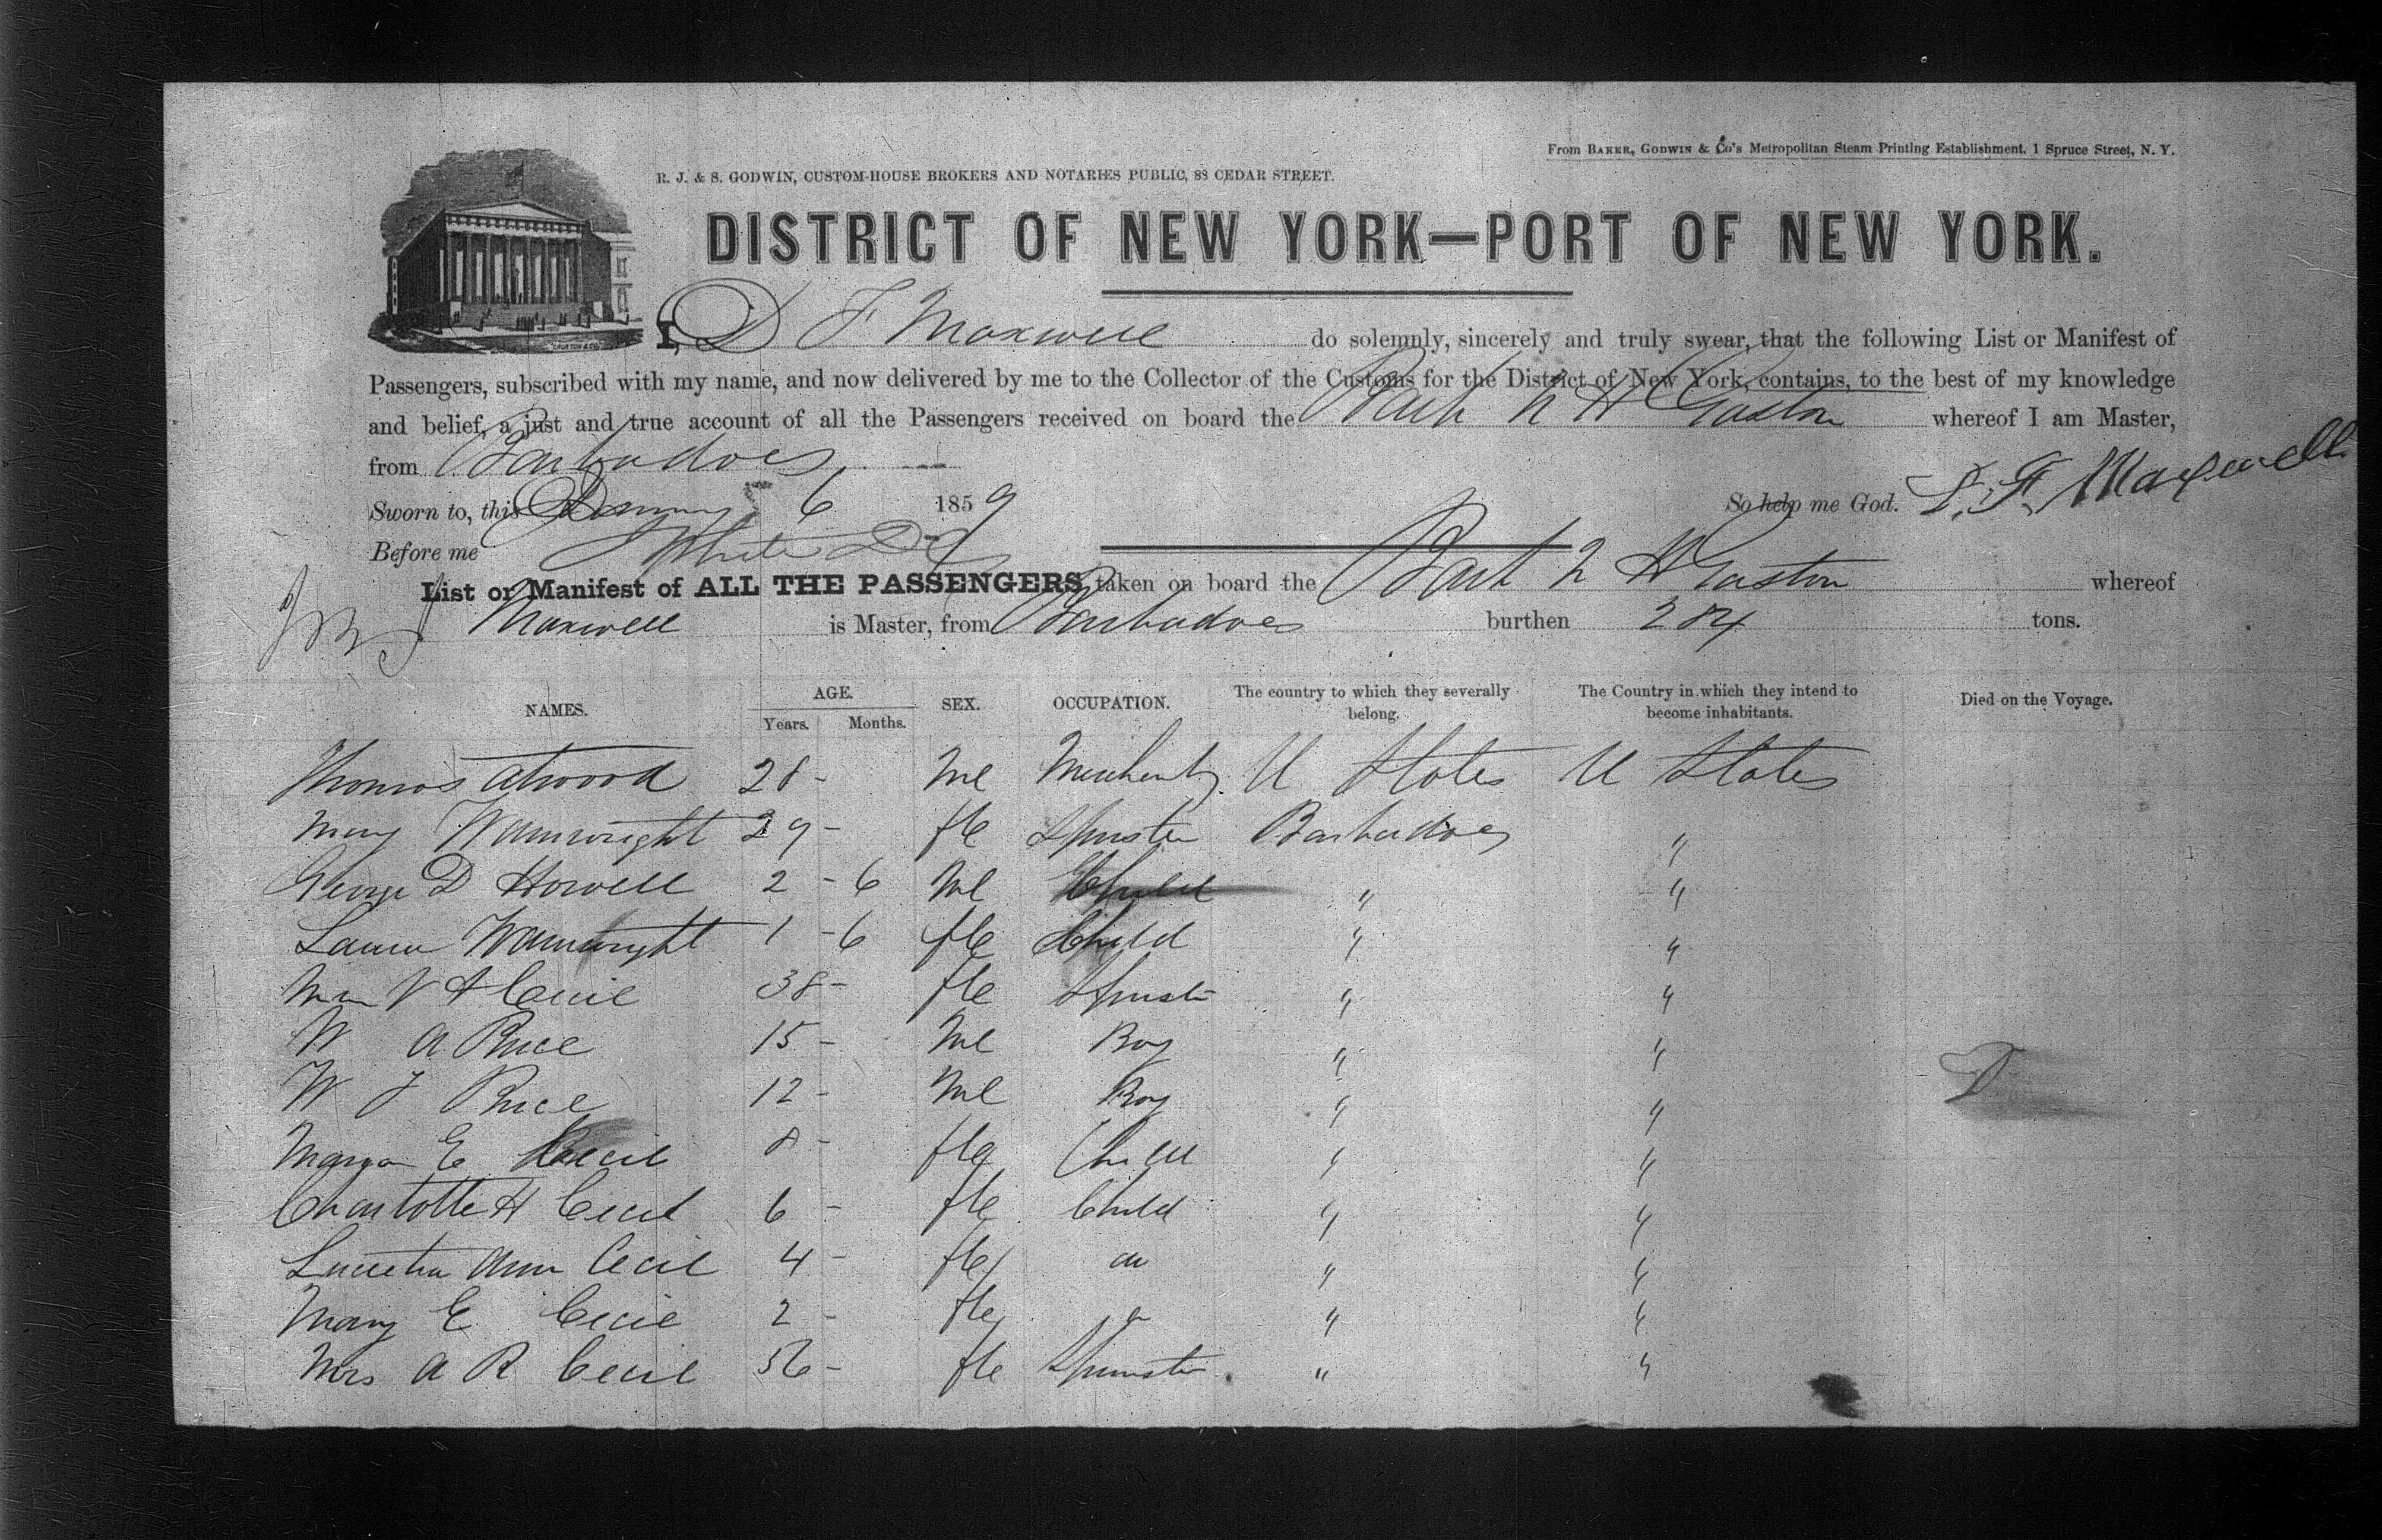 From BAKER, GODWIN & Co's Metropolitan Steam Printing Establishment. 1 Spruce Street, N. Y.
R. J. & S. GODWIN, CUSTOM-HOUSE BROKERS AND NOTARIES PUBLIC, 88 CEDAR STREET.
DISTRICT OF NEW YORK—PORT OF NEW YORK.
I, D F Maxwell do solemnly, sincerely and truly swear, that the following List or Manifest of
Passengers, subscribed with my name, and now delivered by me to the Collector of the Customs for the District of New York, contains, to the best of my knowledge
and belief, a just and true account of all the Passengers received on board the Bark N H Gaston whereof I am Master,
from Barbadoes
Sworn to, this 6 1859 So help me God. D. F. Maxwell
Before me White
List or Manifest of ALL THE PASSENGERS taken on board the Bark N H Gaston whereof
Maxwell is Master, from Barbadoes burthen 284 tons.
NAMES. AGE. SEX. OCCUPATION. The country to which they severally belong. The Country in which they intend to become inhabitants. Died on the Voyage.
Years. Months.
Thomas Atwood 28 - Ml Merchant U States U States
Mary Wainwright 29 - fle Spinster Barbadoes "
George D Howell 2 - 6 Ml Child " "
Laura Wainwright 1 - 6 fle Child " "
Cecil 38 - fle Spinst " "
W A Price 15 - Ml Boy " "
W J Price 12 - Ml Boy " "
E Cecil 8 - fle Child " "
Charlotte H Cecil 6 - fle Child " "
Lucretia Ann Cecil 4 - fle " "
Mary E Cecil 2 - fle " "
Mrs A R Cecil 56 - fle Spinster " "